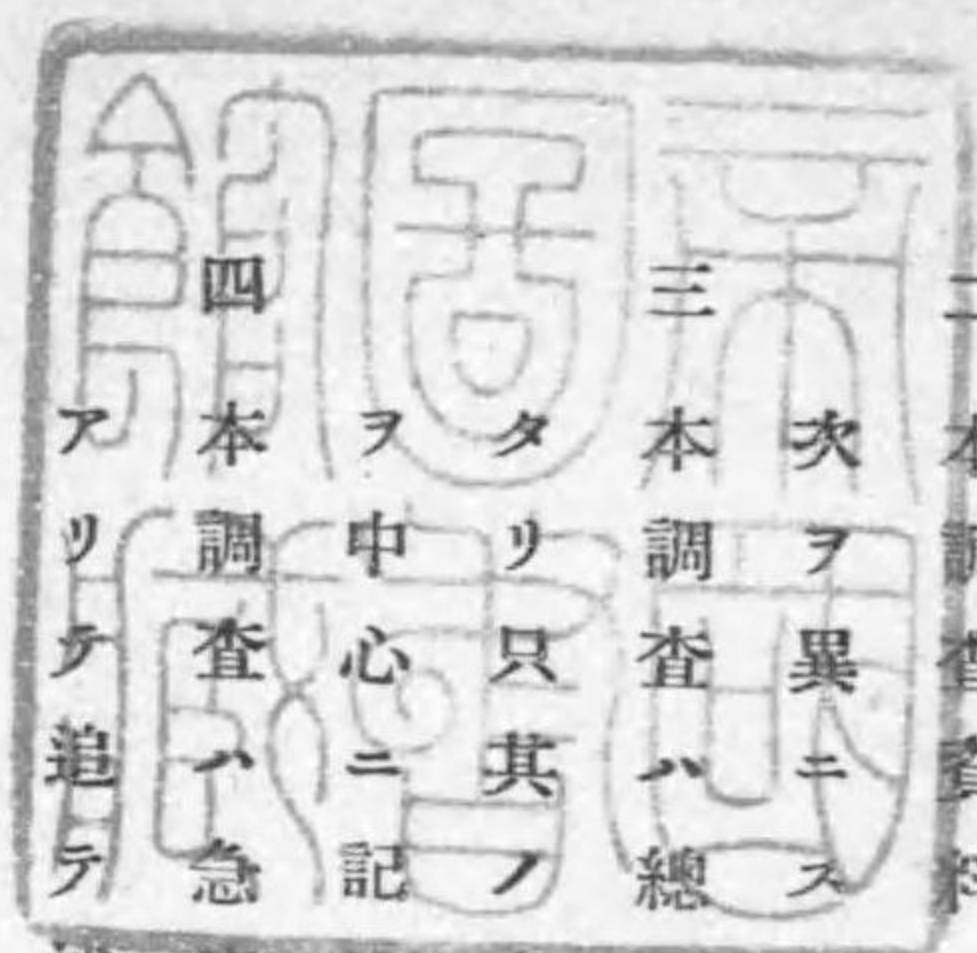 二 本調査
次ヲ異ニス
三 本調査ハ總
タリ只其ノ
ヲ中心ニ記
四 本調査ハ急
アリテ追テ
帝國
圖書
館藏